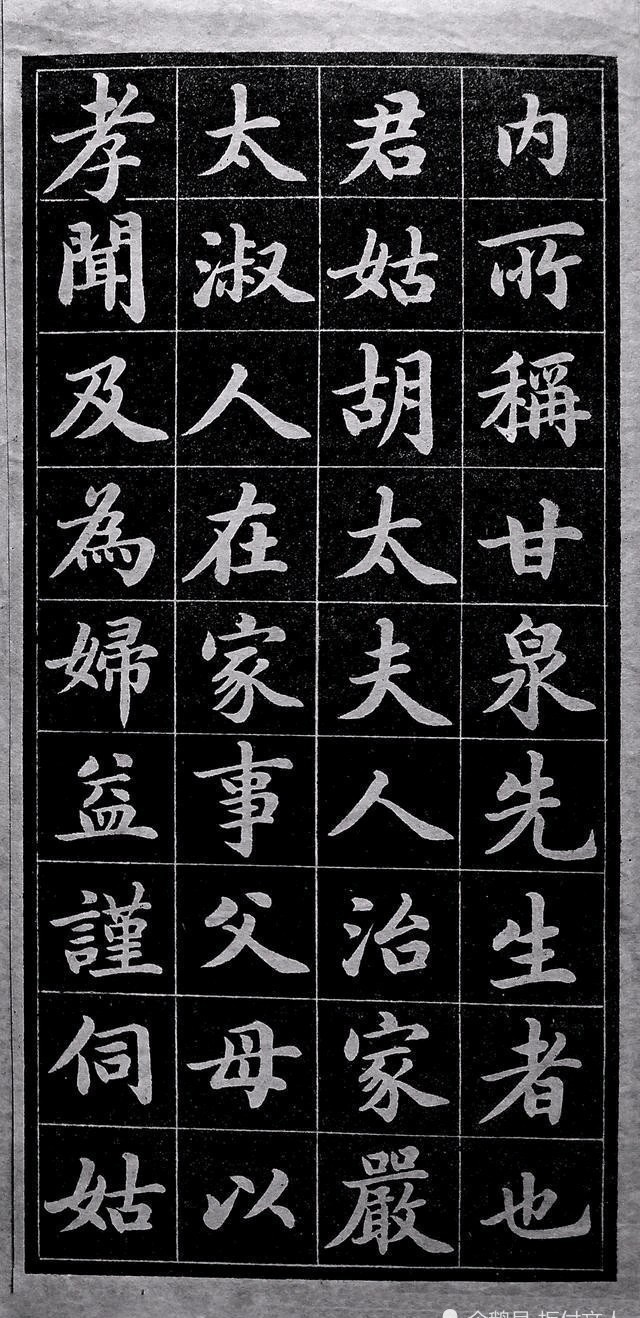 内所稱甘泉先生者也
君姑胡太夫人治家嚴
太淑人在家事父母以
孝聞及為婦益謹伺姑